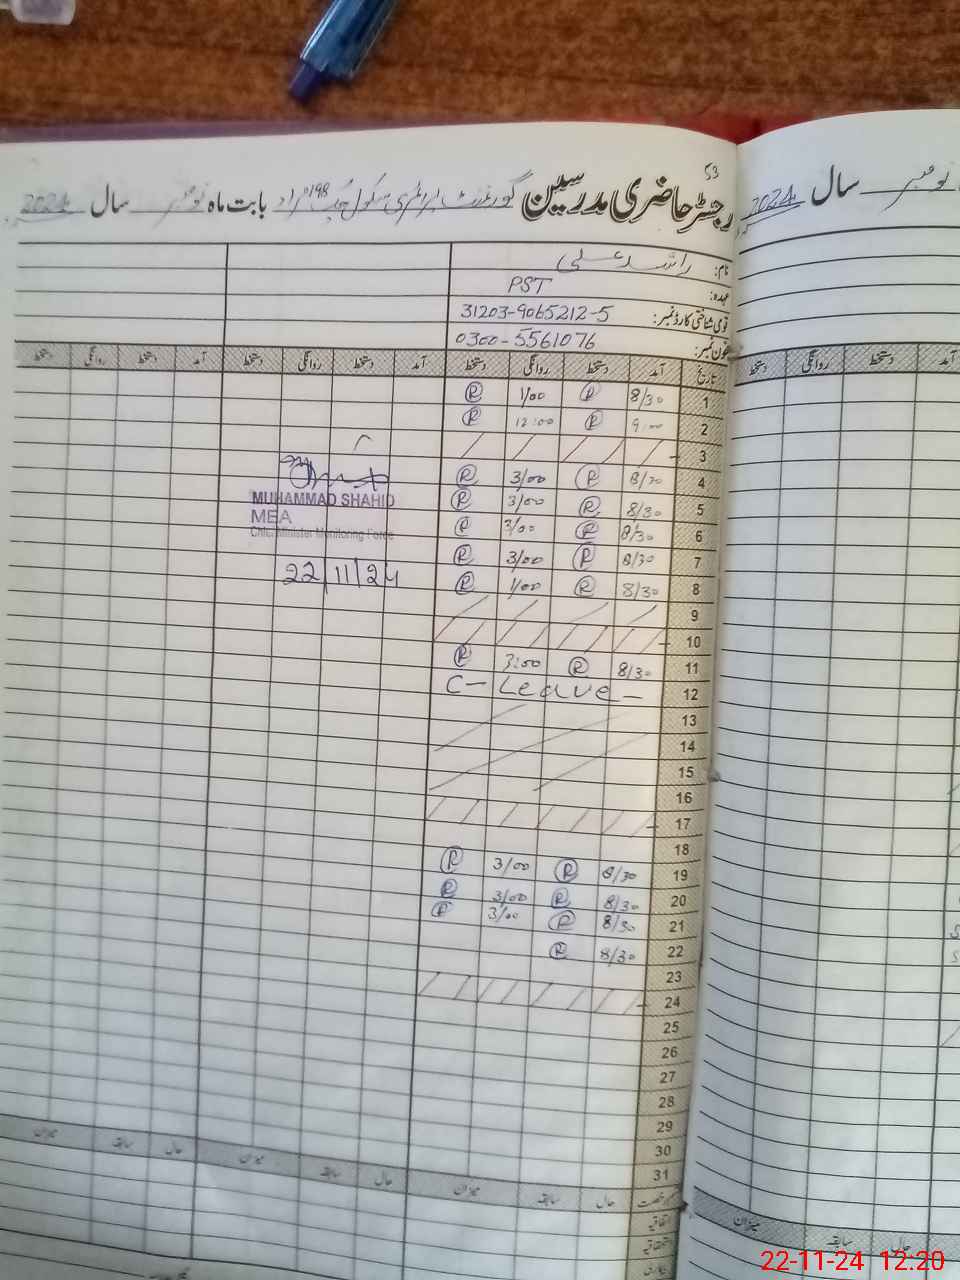 53
رجسٹر حاضری مدرسین گورنمنٹ پرائمری سکول چک 198 مراد بابت ماہ نومبر سال 2024
نام: راشد علی
عہدہ: PST
قومی شناختی کارڈ نمبر: 31203-9065212-5
فون نمبر: 0300-5561076
تاریخ آمد دستخط روانگی دستخط آمد دستخط روانگی دستخط آمد دستخط روانگی دستخط
1 8/30 R 1/00 R
2 9:00 R 12:00 R
3
4 8/30 R 3/00 R
5 8/30 R 3/00 R
6 8/30 R 3/00 R
7 8/30 R 3/00 R
8 8/30 R 1/00 R
9
10
11 8/30 R 3:00 R
12 C- Leave -
13
14
15
16
17
18
19 8/30 R 3/00 R
20 8/30 R 3/00 R
21 8/30 R 3/00 R
22 8/30 R
23
24
25
26
27
28
29
30
31
MUHAMMAD SHAHID
MEA
Chief Minister Monitoring Force
22/11/24
حال سابقہ میزان حال سابقہ میزان حال سابقہ میزان
اتفاقیہ
استحقاقیہ
بیماری
نومبر سال 2024
آمد دستخط روانگی دستخط
حال سابقہ میزان
22-11-24 12:20